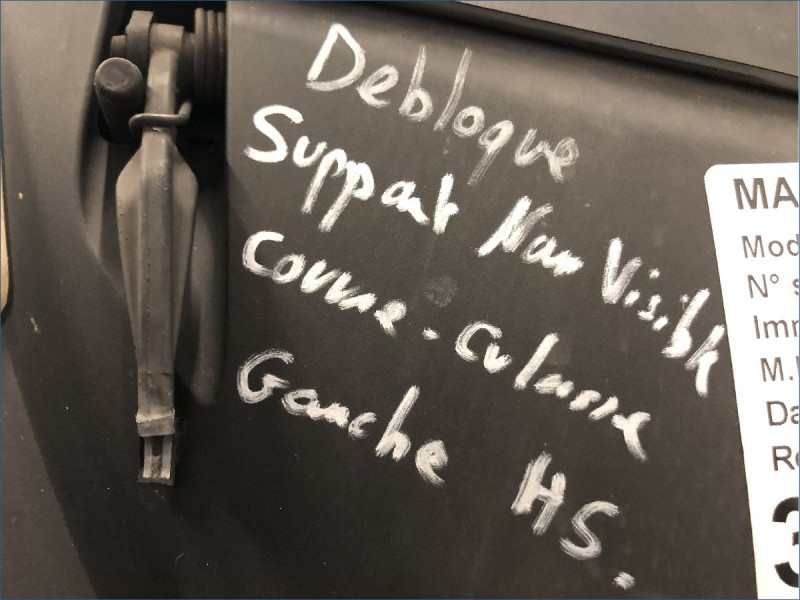 Debloque
Support Non Visible
Couvre-Culasse
Gauche HS.
MA
Mod
N° s
Imm
M.
Da
Re
3